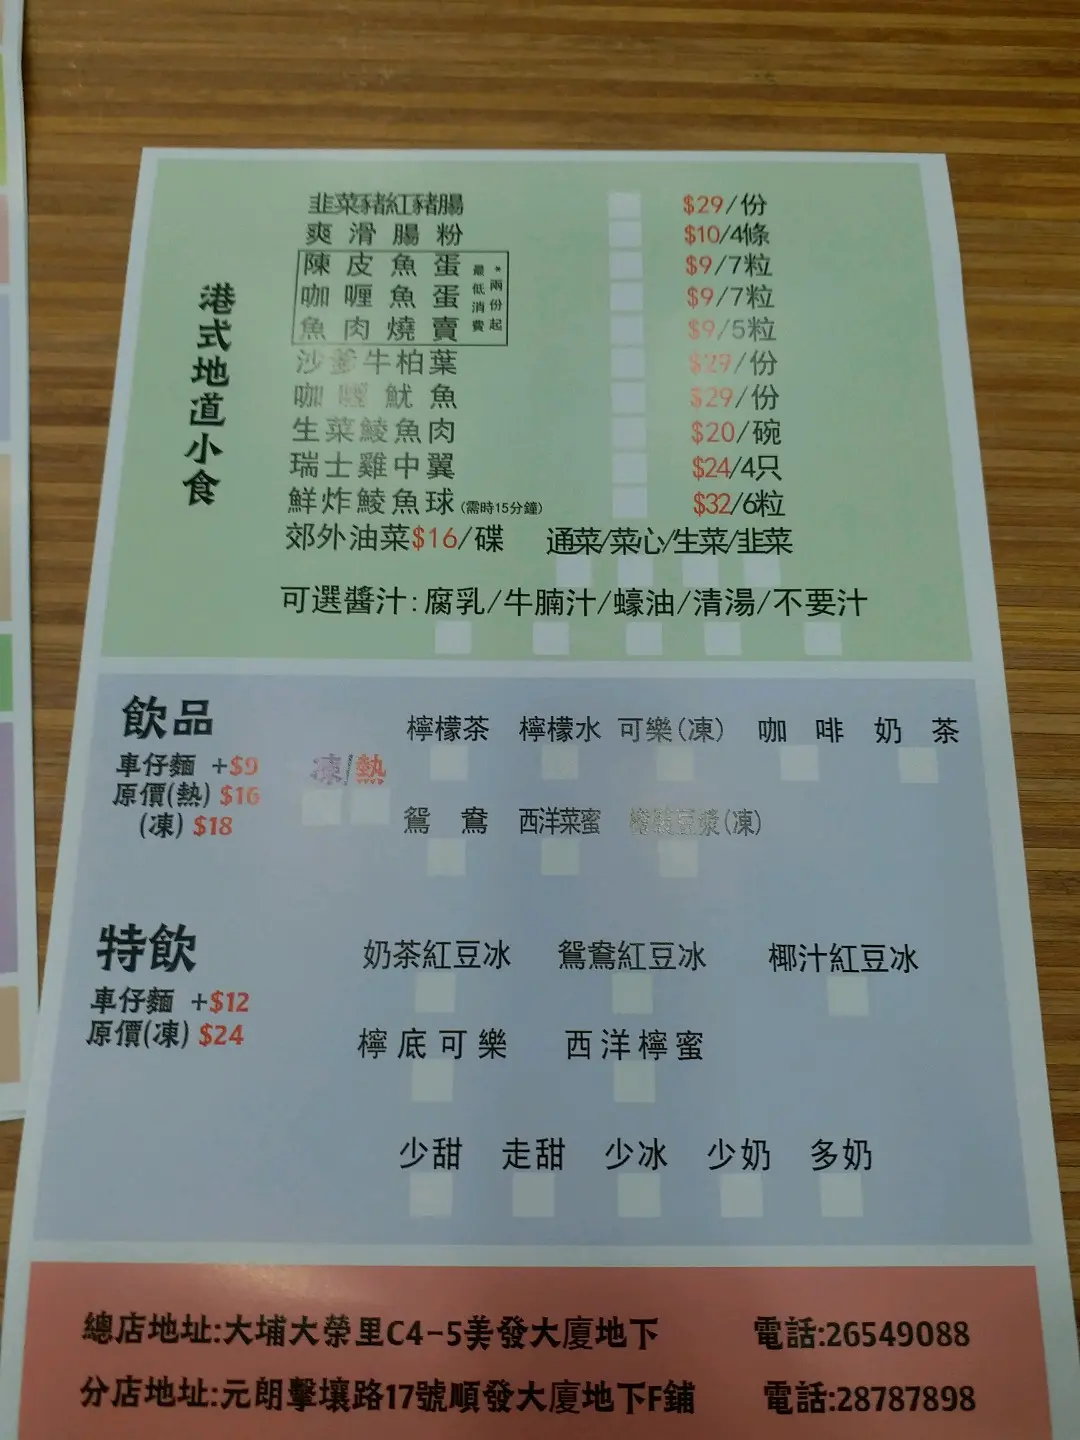 港式地道小食
韭菜豬紅豬腸 $29/份
爽滑腸粉 $10/4條
陳皮魚蛋 $9/7粒
咖喱魚蛋 $9/7粒
魚肉燒賣 $9/5粒
*兩份起
最低消費
沙爹牛柏葉 $29/份
咖喱魷魚 $29/份
生菜鯪魚肉 $20/碗
瑞士雞中翼 $24/4只
鮮炸鯪魚球(需時15分鐘) $32/6粒
郊外油菜$16/碟 通菜/菜心/生菜/韭菜
可選醬汁:腐乳/牛腩汁/蠔油/清湯/不要汁
飲品
車仔麵 +$9
原價(熱) $16
(凍) $18
凍/熱
檸檬茶 檸檬水 可樂(凍) 咖啡 奶茶
鴛鴦 西洋菜蜜 樽裝豆漿(凍)
特飲
車仔麵 +$12
原價(凍) $24
奶茶紅豆冰 鴛鴦紅豆冰 椰汁紅豆冰
檸底可樂 西洋檸蜜
少甜 走甜 少冰 少奶 多奶
總店地址:大埔大榮里C4-5美發大廈地下 電話:26549088
分店地址:元朗擊壤路17號順發大廈地下F鋪 電話:28787898